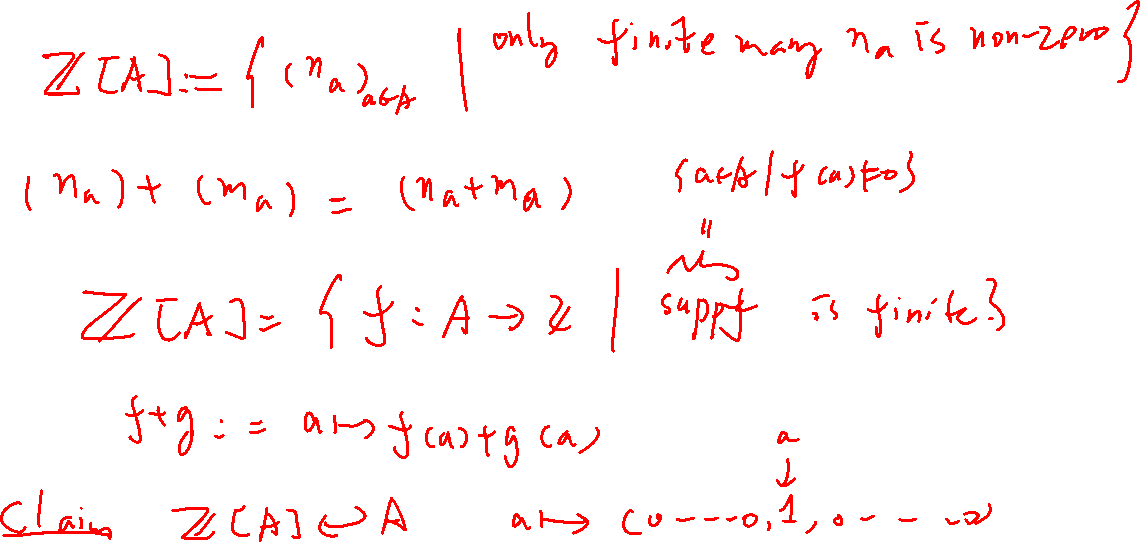 ℤ[A] := { (n_a)_{a∈A} | only finite many n_a is non-zero }
(n_a) + (m_a) = (n_a + m_a)
{a∈A | f(a) ≠ 0}
"
ℤ[A] = { f : A → ℤ | supp f is finite }
f+g := a ↦ f(a) + g(a)
a
↓
Claim ℤ[A] ↩ A a ↦ (0 - - - 0, 1, 0 - - - 0)